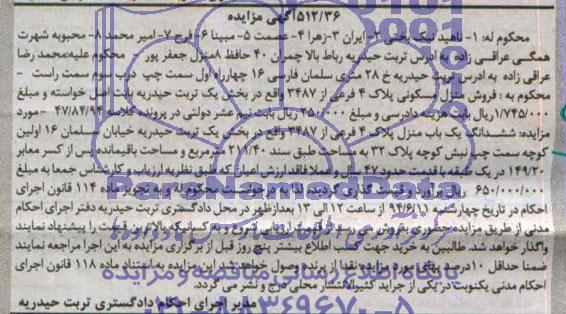 ۵۱۲/۳۶آگهی مزایده
محکوم له: ۱- ناهید نیک بختی ۲- ایران ۳- زهرا ۴- عصمت ۵- مبینا ۶- فرخ ۷- امیر محمد ۸- محبوبه شهرت
همگی عراقی زاده به ادرس تربت حیدریه رباط بالا چمران ۴۰ حافظ ۸منزل جعفر پور محکوم علیه:محمد رضا
عراقی زاده به ادرس تربت حیدریه خ ۲۸ متری سلمان فارسی ۱۶ چهارراه اول سمت چپ درب سوم سمت راست -
محکوم به : فروش منزل مسکونی پلاک ۴ فرعی از ۳۴۸۷ واقع در بخش یک تربت حیدریه بابت اصل خواسته و مبلغ
۱/۷۴۵/۰۰۰ریال بابت هزینه دادرسی و مبلغ ۲۵۰/۰۰۰ ریال بابت نیم عشر دولتی در پرونده کلاسه ۴۷/۸۴/۹۴ - مورد
مزایده: ششدانگ یک باب منزل پلاک ۴ فرعی از ۳۴۸۷ واقع در بخش یک تربت حیدریه خیابان سلمان ۱۶ اولین
کوچه سمت چپ نبش کوچه پلاک ۳۲ به مساحت طبق سند ۲۱۱/۴۰ مترمربع و مساحت باقیمانده پس از کسر معابر
۱۴۹/۲۰ در یک طبقه با قدمت حدود ۴۷ سال و عملا فاقد ارزش اعیان که طبق نظریه ارزیاب و کارشناس جمعا به مبلغ
۶۵۰/۰۰۰/۰۰۰ ریال برآورد و قیمت گذاری گردیده لذا به درخواست محکوم له و به تجویز ماده ۱۱۴ قانون اجرای
احکام در تاریخ چهارشنبه ۹۴/۶/۱۱ از ساعت ۱۲ الی ۱۳ بعدازظهر در محل دادگستری تربت حیدریه دفتر اجرای احکام
مدنی از طریق مزایده حضوری بفروش می رسد قیمت از ارزیابی شروع و به کسانیکه بالاترین قیمت را پیشنهاد نمایند
واگذار خواهد شد. طالبین به خرید جهت کسب اطلاع بیشتر پنج روز قبل از برگزاری مزایده به این اجرا مراجعه نمایند
ضمنا حداقل ۱۰درصد بهای مورد مزایده نقدا از برنده وصول خواهد شد این مزایده به استناد ماده ۱۱۸ قانون اجرای
احکام مدنی یکنوبت در یکی از جراید کثیرالانتشار محلی درج و نشر می گردد.
مدیر اجرای احکام دادگستری تربت حیدریه
ParsNamadData
پایگاه اطلاع رسانی مناقصه و مزایده
۰۲۱-۸۸۳۴۹۶۷۰-۵